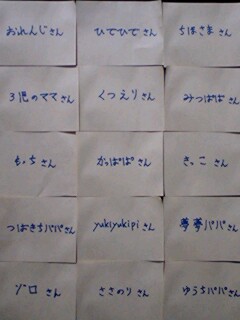 おれんじさん
ひでひでさん
ちはさまさん
3児のママさん
くつえりさん
みつぱぱさん
もっちさん
かっぱぱさん
さっこさん
つばきちパパさん
yukiyukipiさん
夢夢パパさん
ゾロさん
ささのりさん
ゆうちパパさん